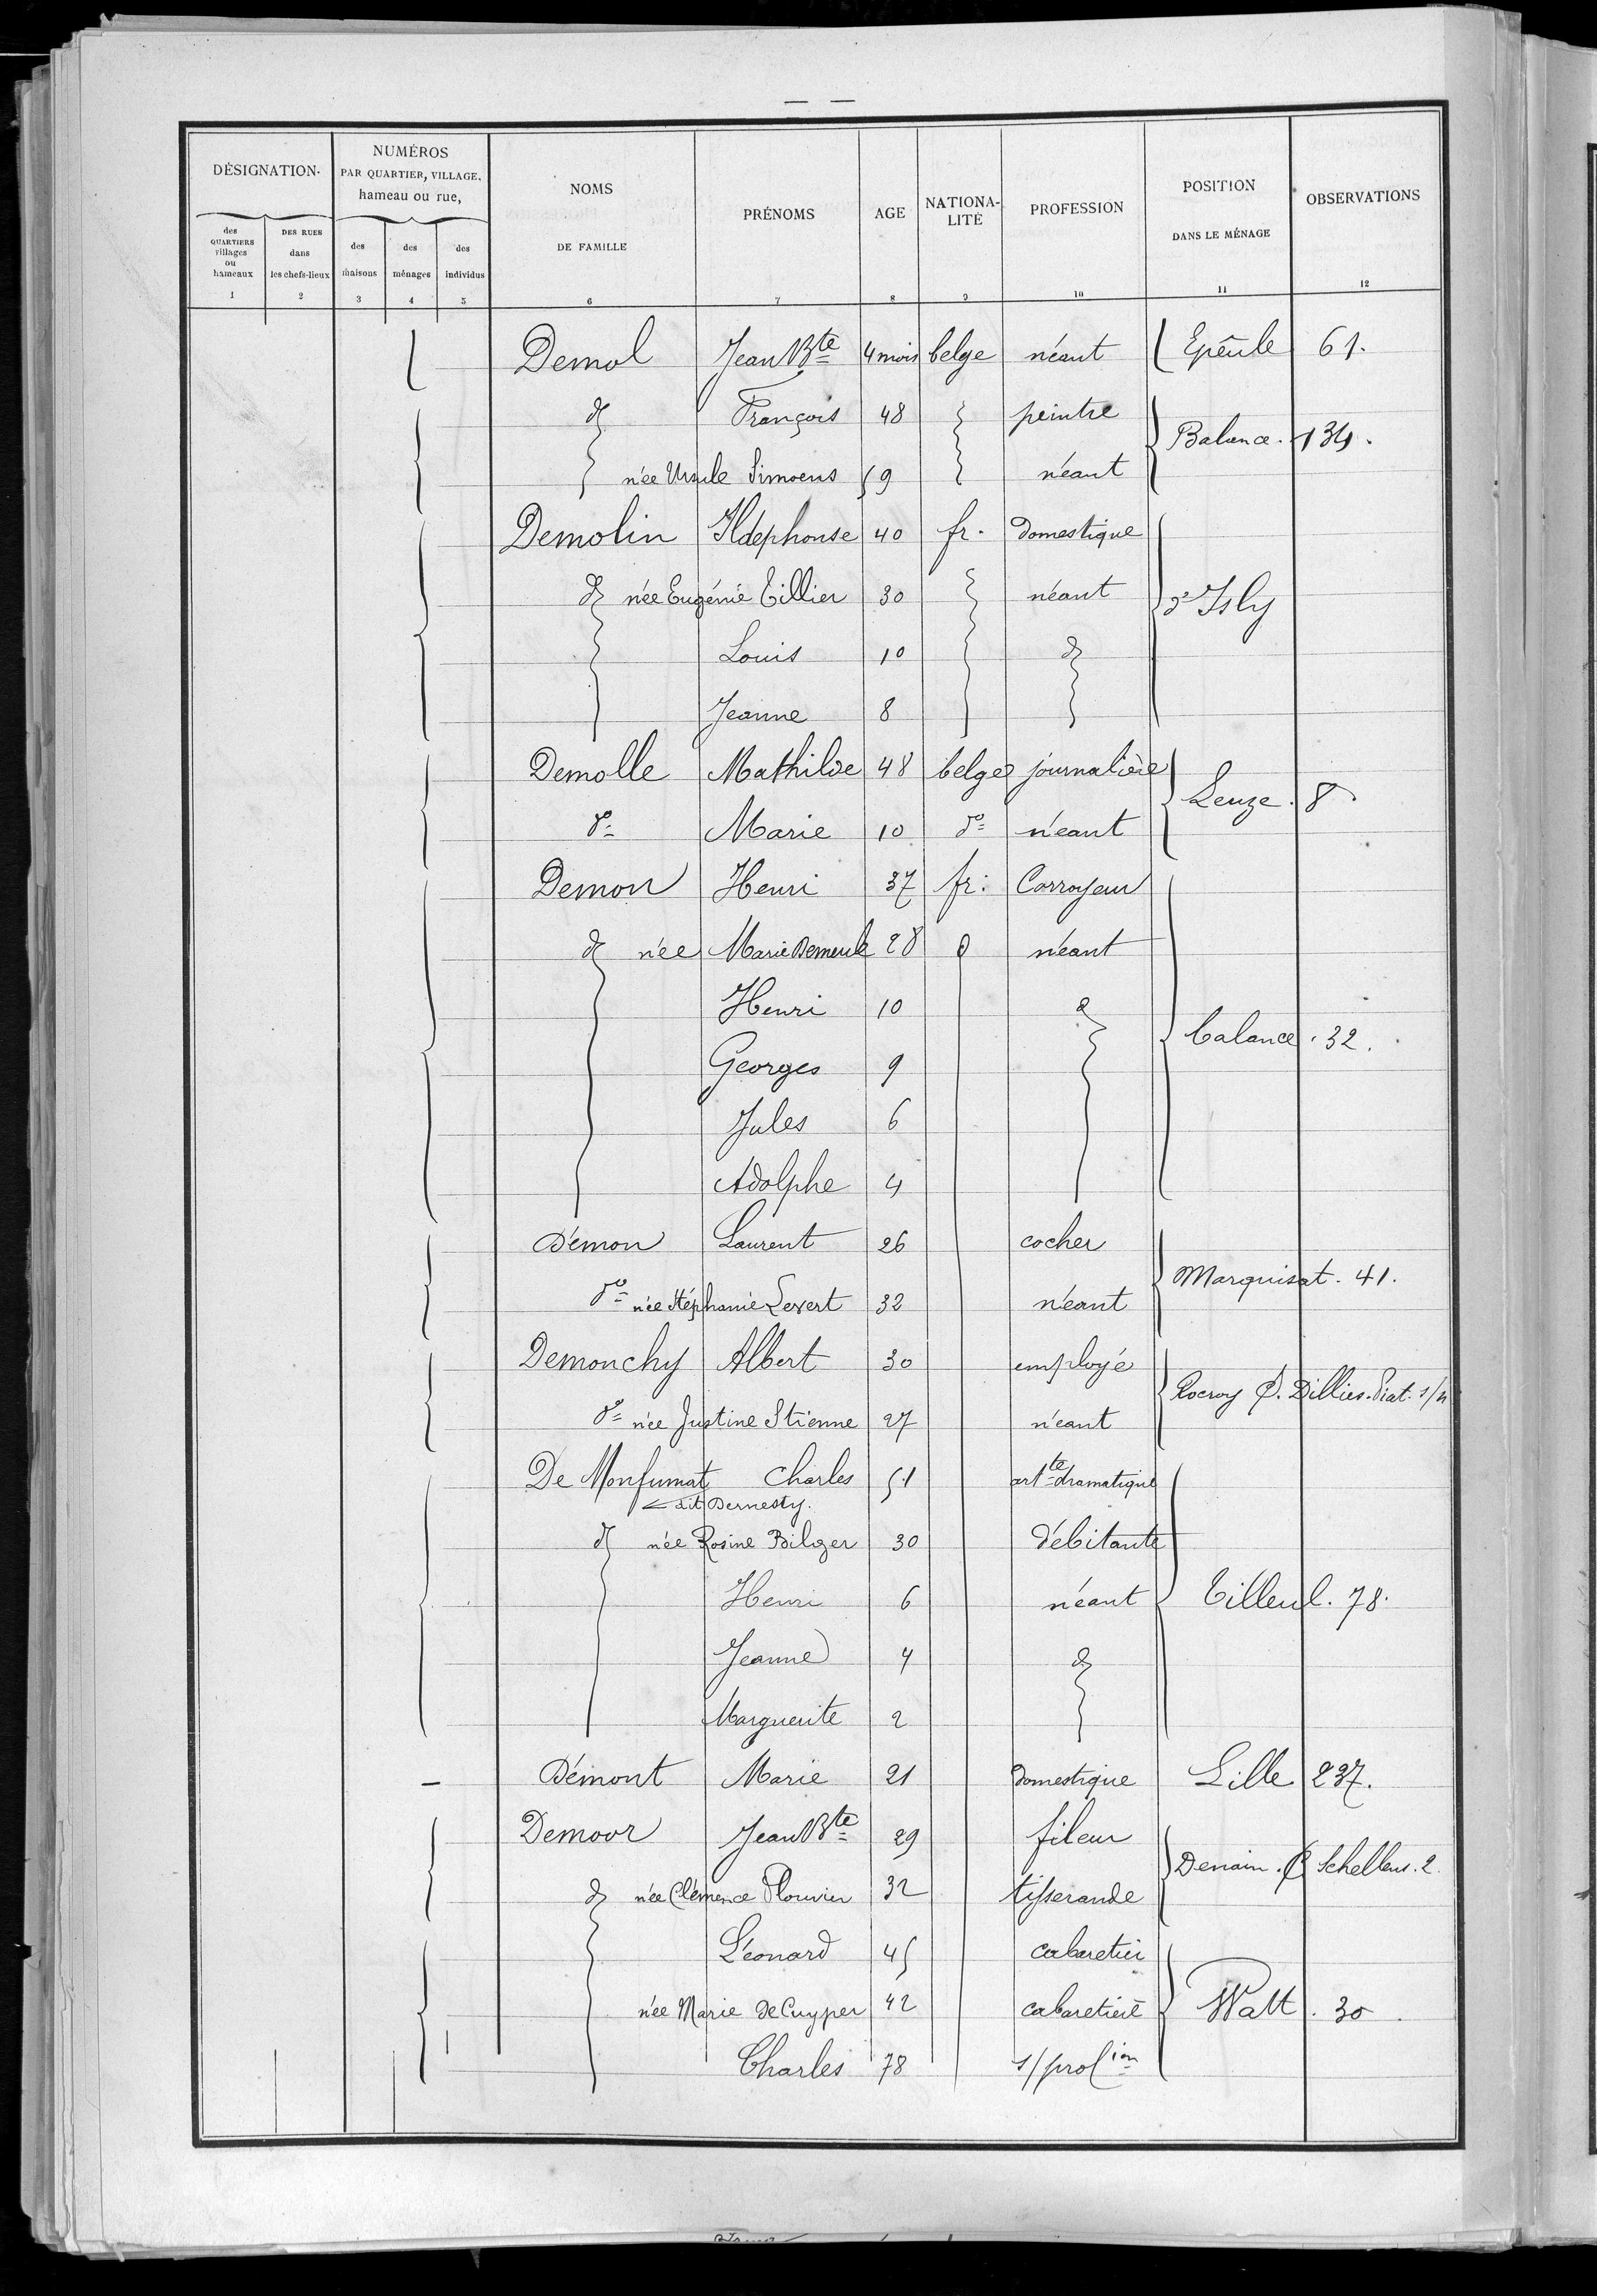 DÉSIGNATION. NUMÉROS PAR QUARTIER, VILLAGE, hameau ou rue, NOMS DE FAMILLE PRÉNOMS AGE NATIONALITÉ PROFESSION POSITION DANS LE MÉNAGE OBSERVATIONS
des QUARTIERS villages ou hameaux DES RUES dans les chefs-lieux des maisons des ménages des individus
1 2 3 4 5 6 7 8 9 10 11 12
Demol Jean Bte 4 mois belge néant Epeule 61.
do François 48 peintre
Balance. 134.
née Ursule Simoens 59 néant
Demolin Ildephonse 40 fr. domestique
do née Eugénie Tillier 30 néant
d'Isly
Louis 10 do
Jeanne 8
Demolle Mathilde 48 belge journalière
Leuze. 8
do Marie 10 do néant
Demon Henri 37 fr. Corroyeur
do née Marie Demeule 28 do néant
Henri 10 do
Balance. 32.
Georges 9
Jules 6
Adolphe 4
Démon Laurent 26 cocher
Marquisat. 41.
do née Stéphanie Levert 32 néant
Demonchy Albert 30 employé
Rocroy C. Dillies-Piat. s/n
do née Justine Stienne 27 néant
De Monfumat Charles 51 artte dramatique
dit Dernesty.
do née Rosine Bilger 30 débitante
Henri 6 néant Tilleul. 78.
Jeanne 4 do
Marguerite 2
Démont Marie 21 domestique Lille 237.
Demoor Jean Bte 29 fileur
Denain. C. Schellens. 2.
do née Clémence Plouvier 32 tisserande
Léonard 45 cabaretier
née Marie De Cuyper 42 cabaretière Watt. 30.
Charles 78 s/profion